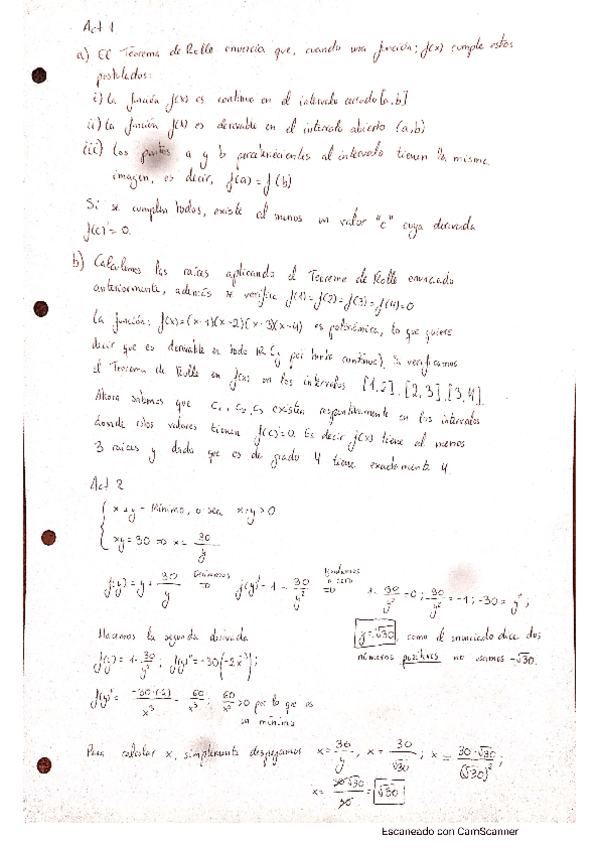 Act 1
a) El Teorema de Rolle enuncia que, cuando una función; f(x) cumple estos
postulados:
i) La función f(x) es continua en el intervalo cerrado [a,b]
ii) La función f(x) es derivable en el intervalo abierto (a,b)
iii) Los puntos a y b pertenecientes al intervalo tienen la misma
imagen, es decir, f(a) = f(b)
Si se cumplen todos, existe al menos un valor "c" cuya derivada
f(c)'= 0.
b) Calculemos las raíces aplicando el Teorema de Rolle enunciado
anteriormente, además se verifica f(1)=f(2)=f(3)=f(4)=0
La función: f(x)=(x-1)(x-2)(x-3)(x-4) es polinómica, lo que quiere
decir que es derivable en todo R (y por tanto continua). Si verificamos
el Teorema de Rolle en f(x) en los intervalos [1,2], [2,3], [3,4].
Ahora sabemos que c₁, c₂, c₃ existen respectivamente en los intervalos
donde estos valores tienen f(c)'=0. Es decir f(x) tiene al menos
3 raíces y dado que es de grado 4 tiene exactamente 4.
Act 2
x+y = Mínimo, o sea x+y>0
xy = 30 => x = 30/y
f(y) = y + 30/y Derivamos => f(y)' = 1 - 30/y² Igualamos a cero => 1 - 30/y² = 0; -30/y² = -1; -30 = y²;
Hacemos la segunda derivada
y = √30, como el enunciado dice dos
números positivos no usamos -√30.
f(y)' = 1 - 30/y²; f(y)'' = -30(-2x⁻³);
f(y)'' = -30·(-2)/x³ = 60/x³; 60/x³ > 0 por lo que es
un mínimo
Para calcular x, simplemente despejamos x = 30/y, x = 30/√30; x = 30·√30/(√30)²;
x = 30√30/30 = √30
Escaneado con CamScanner